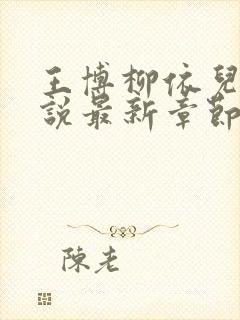 王博柳依兒
說最新章節
陳老